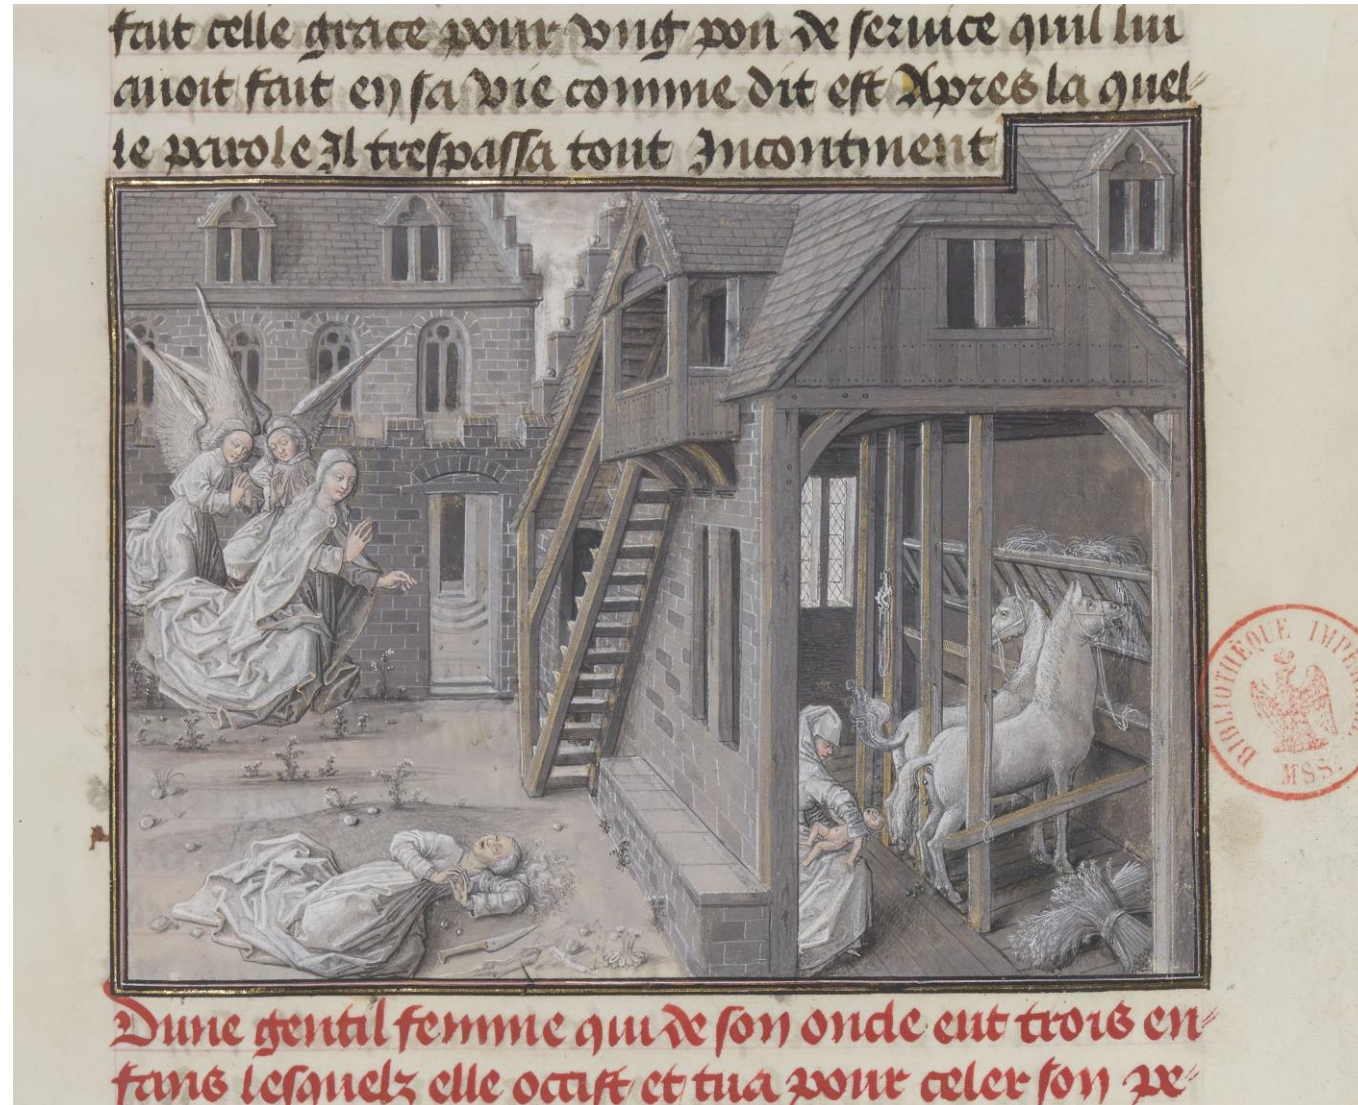 fait celle grace pour vng pou de seruice quil lui
auoit fait en sa vie comme dit est Apres la quel
le parole Il trespassa tout Incontinent
BIBLIOTHÈQUE IMPÉRIALE
MSS.
Dune gentil femme qui de son oncle eut trois en
fans lesquelz elle occist et tua pour celer son pe